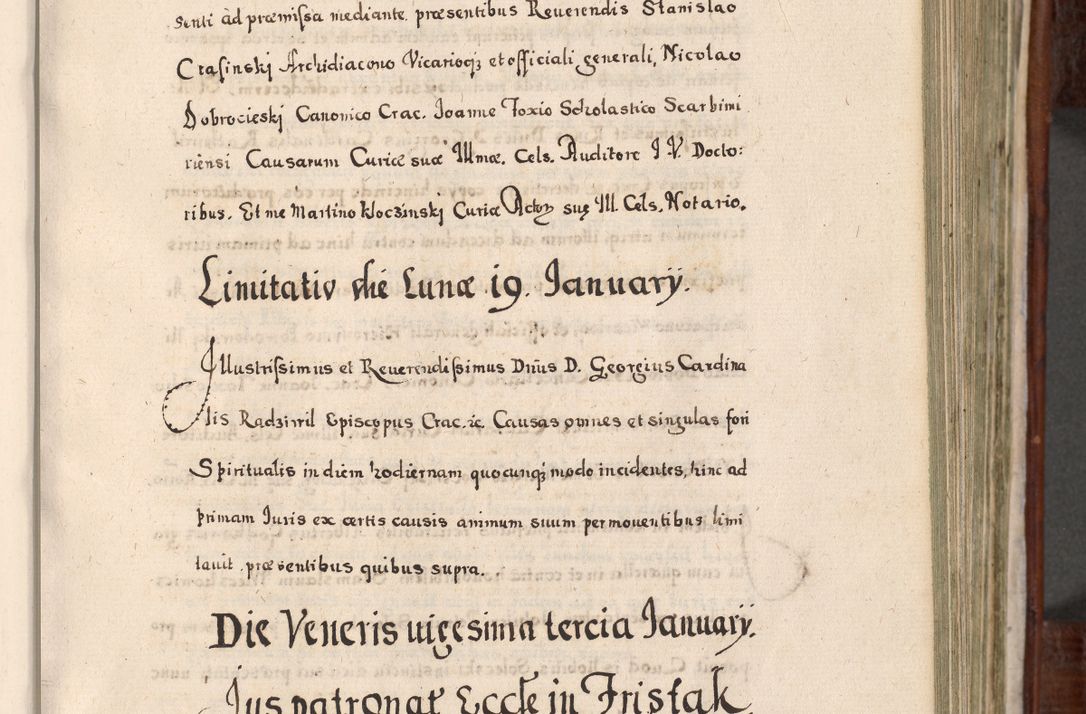 senti ad præmissa mediante, præsentibus Reuerendis Stanislao
Crasinskj Archidiacono Vicarioq; et officiali generali, Nicolao
Dobrocieskj Canonico Crac. Joanne Foxio Scholastico Scarbimi
riensi Causarum Curiæ suæ Illmæ. Cels. Auditore J. V. Docto:
ribus. Et me Martino Kloczinskj Curiæ Actor suę Ill. Cels. Notario.
Limitatio diei Lunæ 19. Januarij.
Illustrissimus et Reuerendissimus Dnus D. Georgius Cardina
lis Radziwil Episcopus Crac. etc. Causas omnes et singulas fori
Spiritualis in diem hodiernam quocunq; modo incidentes, hinc ad
primam Juris ex certis causis animum suum permouentibus limi
tauit, præsentibus quibus supra.
Die Veneris uigesima tercia Januarij.
Jus patronat Eccle in Fristak